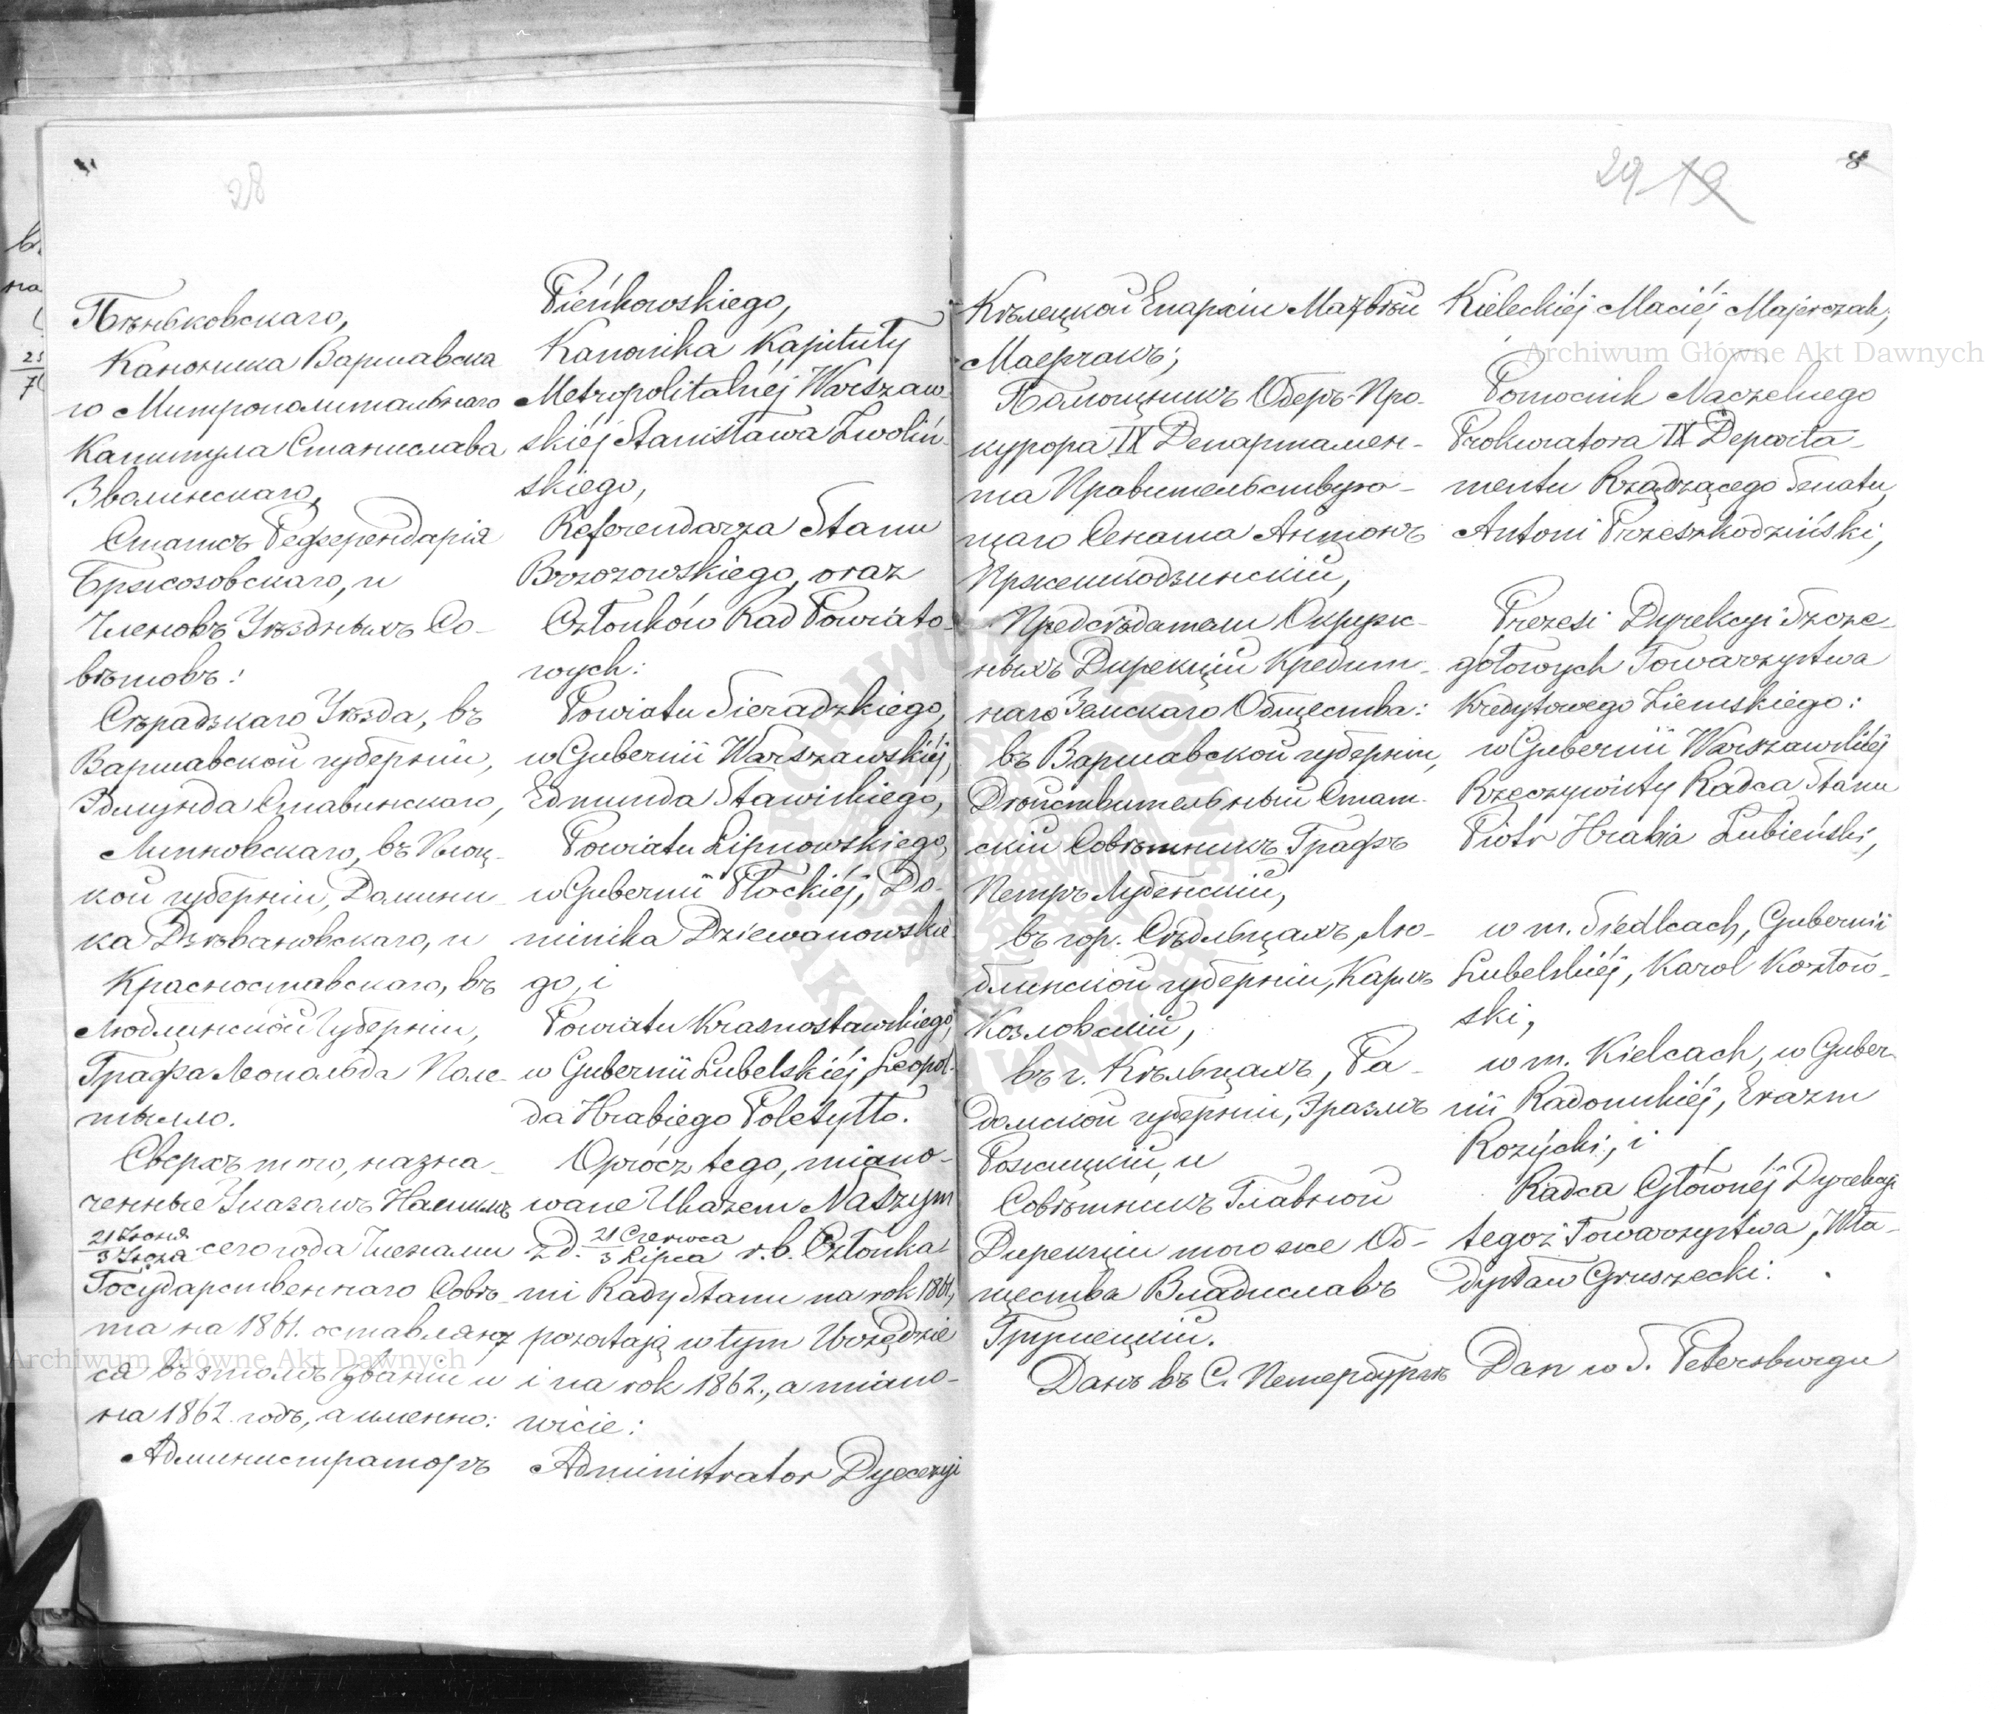 28
Пѣньковскаго,
Каноника Варшавска
го Митрополитальнаго
Капитула Станислава
Зволинскаго,
Статсъ Референдарія
Бржозовскаго, и
Членовъ Уѣздныхъ Со-
вѣтовъ:
Сѣрадзкаго Уѣзда, въ
Варшавской губерніи,
Эдмунда Ставискаго,
Липновскаго, въ Плоц-
кой губерніи, Домини-
ка Дзѣвановскаго, и
Красноставскаго, въ
Люблинской Губерніи,
Графа Леопольда Поле-
тылло.
Сверхъ того, назна-
ченные Указомъ Нашимъ
21 Іюня
3 Іюля сего года Членами
Государственнаго Совѣ-
та на 1861. оставляют
ся въ этомъ званіи и
на 1862 годъ, а именно:
Администраторъ
Pieńkowskiego,
Kanonika Kapituły
Metropolitalnéj Warszaw-
skiéj Stanisława Zwoliń-
skiego,
Referendarza Stanu
Brzozowskiego, oraz
Członków Rad Powiato-
wych:
Powiatu Sieradzkiego,
w Gubernii Warszawskiéj,
Edmunda Stawiskiego,
Powiatu Lipnowskiego,
w Gubernii Płockiéj, Do-
minika Dziewanowskie-
go, i
Powiatu Krasnostawskiego,
w Gubernii Lubelskiéj, Leopol-
da Hrabiego Poletyłło.
Oprócz tego, miano-
wane Ukazem Naszym
z d. 21 Czerwca
3 Lipca r. b. Członka-
mi Rady Stanu na rok 1861,
pozostają w tym Urzędzie
i na rok 1862., a miano-
wicie:
Administrator Dyecezyi
29 19
8
Кѣлецкой Епархіи Матвѣй
Маерчакъ;
Помощникъ Оберъ-Про-
курора IX Департамен-
та Правительствую-
щаго Сената Антонъ
Пржешкодзинскій,
Предсѣдатели Окруж-
ныхъ Дирекціи Кредит-
наго Земскаго Общества:
въ Варшавской губерніи,
Дѣйствительный Стат-
скій Совѣтникъ Графъ
Петръ Лубенскій,
въ гор. Сѣдльцахъ, Лю-
блинской губерніи, Карлъ
Козловскій,
въ г. Кѣльцахъ, Ра-
домской губерніи, Эразмъ
Рожицкій, и
Совѣтникъ Главной
Дирекціи того же Об-
щества Владиславъ
Грушецкій.
Данъ въ С. Петербургѣ
Kieleckiéj Maciéj Majerczak;
Pomocnik Naczelnego
Prokuratora IX Departa-
mentu Rządzącego Senatu
Antoni Przeszkodziński,
Prezesi Dyrekcyi Szcze-
gółowych Towarzystwa
Kredytowego Ziemskiego:
w Gubernii Warszawskiéj
Rzeczywisty Radca Stanu
Piotr Hrabia Łubieński,
w m. Siedlcach, Gubernii
Lubelskiéj, Karol Kozłow-
ski,
w m. Kielcach, w Guber-
nii Radomskiéj, Erazm
Rożycki, i
Radca Głównéj Dyrekcyi
tegoż Towarzystwa, Wła-
dysław Gruszecki.
Dan w S. Petersburgu
Archiwum Główne Akt Dawnych
Archiwum Główne Akt Dawnych